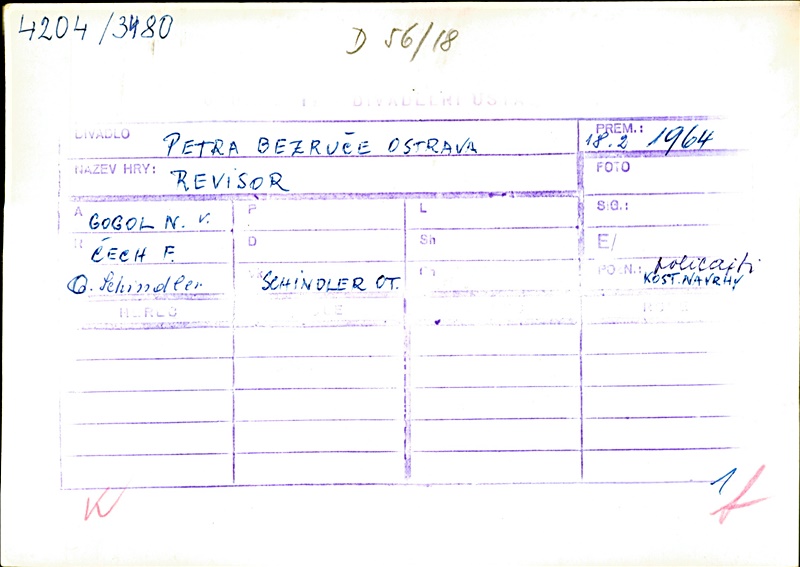 4204/3480
D 56/18
DIVADELNÍ ÚST
DIVADLO PETRA BEZRUČE OSTRAVA
PREM.: 18.2 1964
NÁZEV HRY: REVISOR
FOTO
A GOGOL N. V.
P
L
SIG.:
R ČECH F.
D
Sh
E/
O. Schindler
SCHINDLER OT.
POZN.: policajti
KOST. NÁVRHY
1